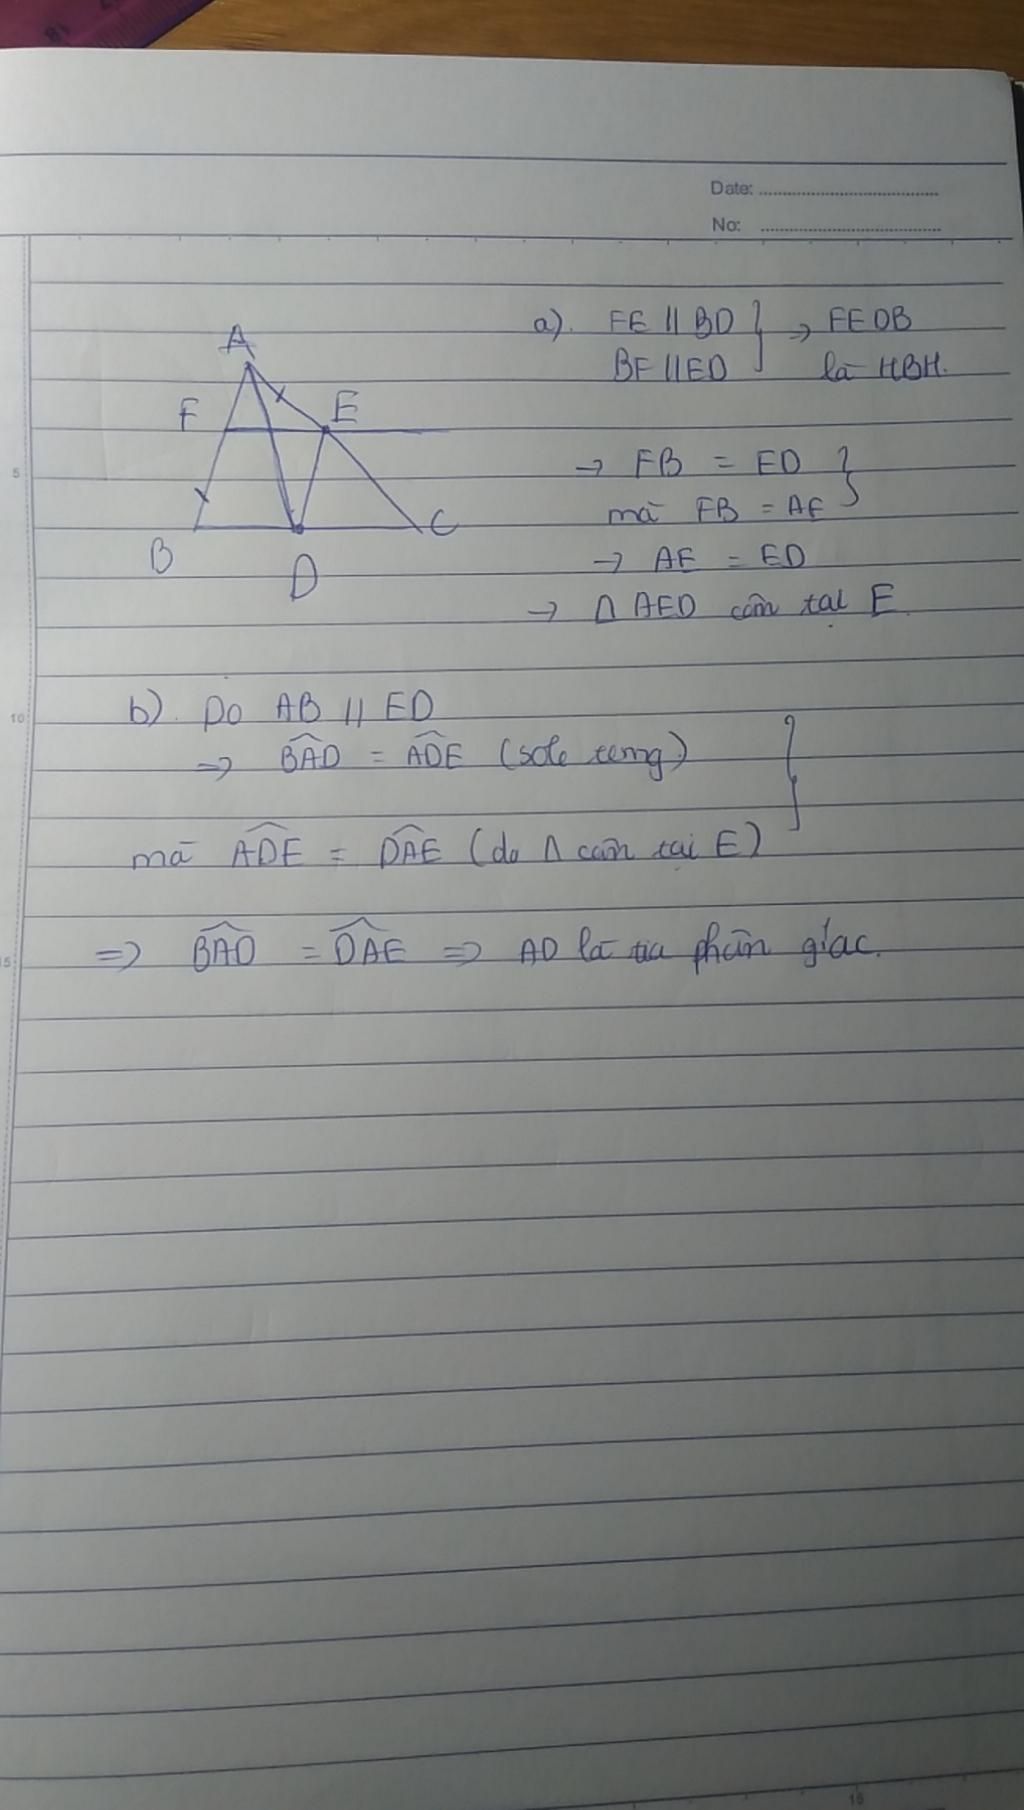 Date:
No:
A
F
E
B
D
C
a). FE // BD } → FEDB
BF // ED là HBH.
→ FB = ED }
mà FB = AE
→ AE = ED
→ Δ AED cân tại E.
b). Do AB // ED
=> BAD = ADE (sole trong) }
mà ADE = DAE (do Δ cân tại E)
=> BAD = DAE => AD là tia phân giác.
5
10
15
15